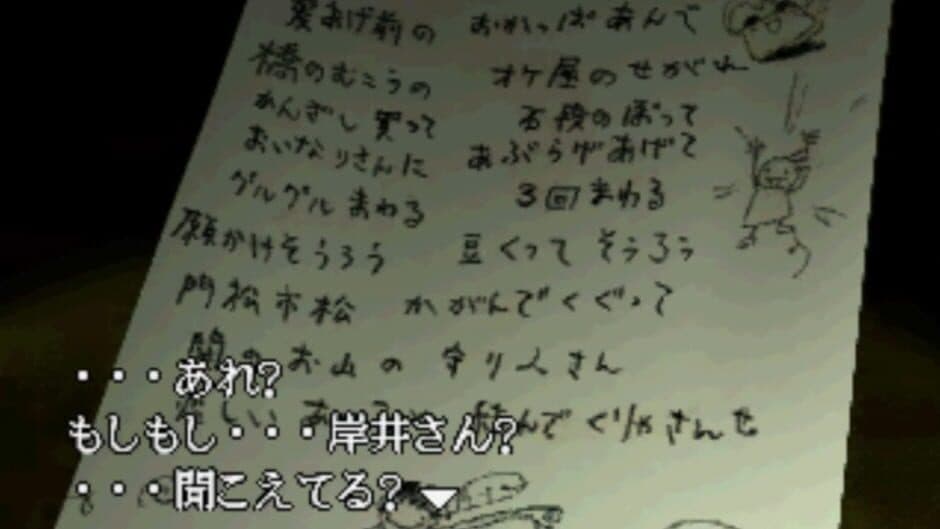 髪あげ前の おかっぱあんで
橋のむこうの オケ屋のせがれ
かんざし買って 石段のぼって
おいなりさんに あぶらげあげて
グルグルまわる 3回まわる
願かけそうろう 豆くってそうろう
門松市松 かがんでくぐって
お山の 守り人さん
しい 結んでぐりゃさんせ
・・・あれ?
もしもし・・・岸井さん?
・・・聞こえてる?